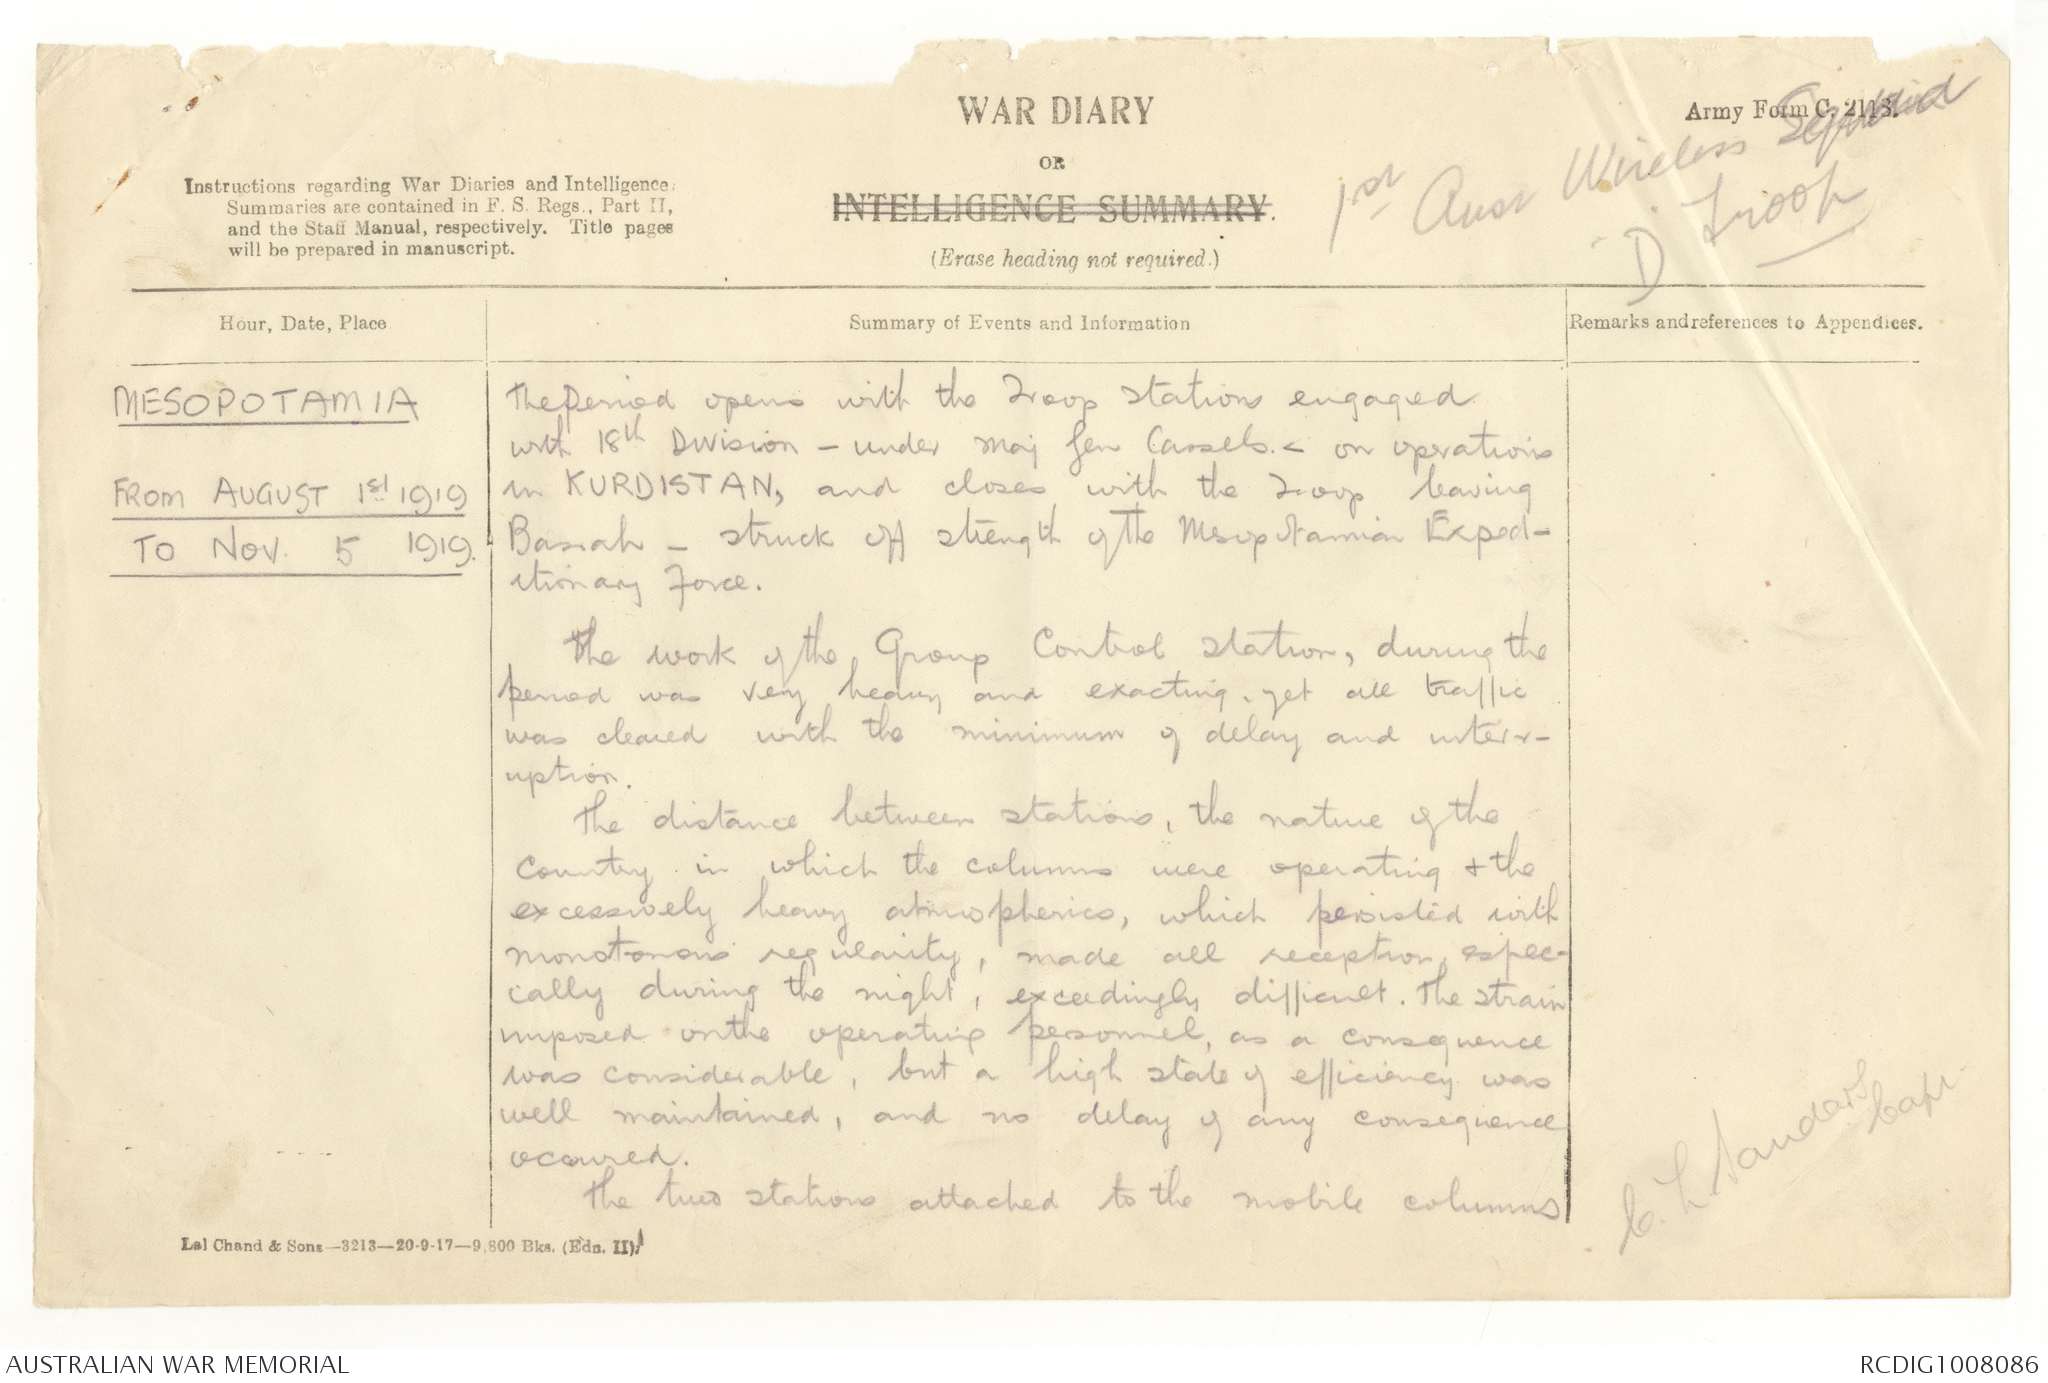 WAR DIARY
OR
INTELLIGENCE SUMMARY.
(Erase heading not required.)
Army Form C. 2118.
Instructions regarding War Diaries and Intelligence
Summaries are contained in F. S. Regs., Part II,
and the Staff Manual, respectively. Title pages
will be prepared in manuscript.
1st Aust Wireless Squadron
D. Troop
Hour, Date, Place
Summary of Events and Information
Remarks and references to Appendices.
MESOPOTAMIA
FROM AUGUST 1st 1919
TO NOV. 5 1919.
The Period opens with the Troop Stations engaged
with 18th Division – under Maj Gen Cassels. – on operations
in KURDISTAN, and closes with the Troop leaving
Basrah – struck off strength of the Mesopotamian Exped-
itionary Force.
The work of the Group Control Station, during the
period was very heavy and exacting, yet all traffic
was cleared with the minimum of delay and interr-
uption.
The distance between stations, the nature of the
Country in which the columns were operating & the
excessively heavy atmospherics, which persisted with
monotonous regularity, made all reception, espec-
ially during the night, exceedingly difficult. The strain
imposed on the operating personnel, as a consequence
was considerable, but a high state of efficiency was
well maintained, and no delay of any consequence
occured.
The two stations attached to the mobile columns
C. L. Saunders Capt.
Lal Chand & Sons—3213—20-9-17—9,800 Bks. (Edn. II)
AUSTRALIAN WAR MEMORIAL
RCDIG1008086